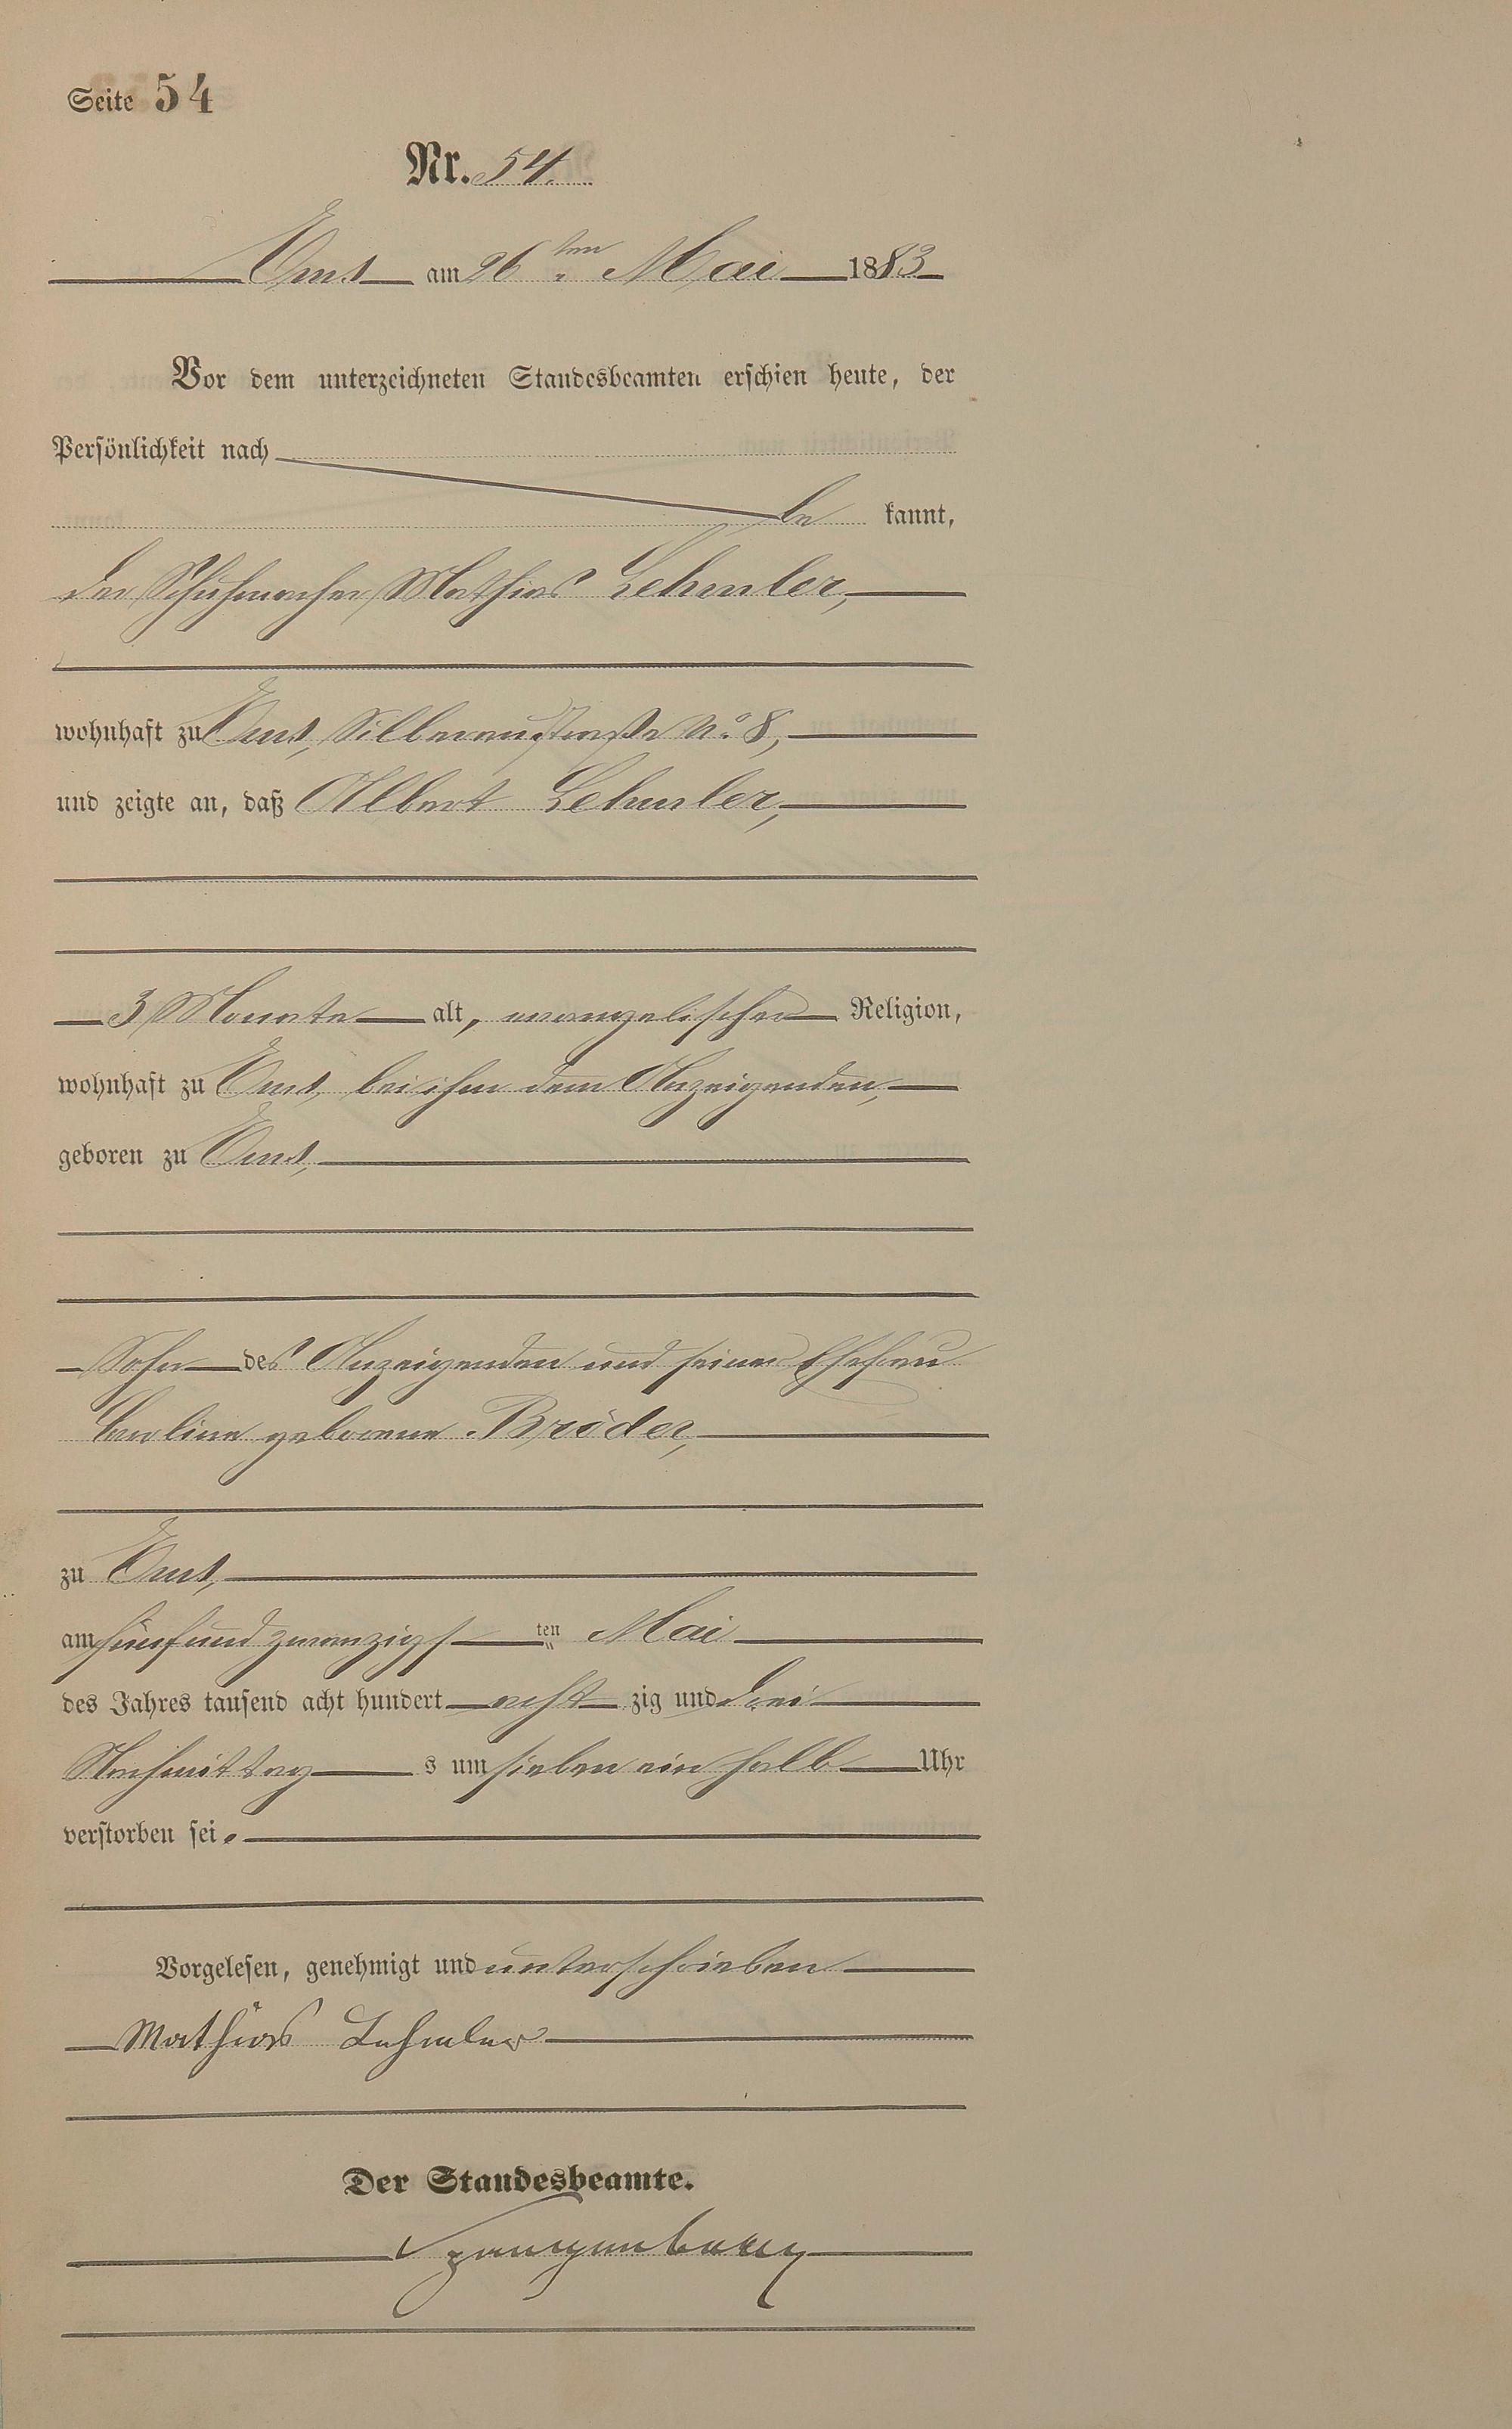 Seite 54
Nr. 54.
Ems am 26ten Mai 1883
Vor dem unterzeichneten Standesbeamten erschien heute, der
Persönlichkeit nach
be kannt,
der Schuhmacher Mathias Lehmler,
wohnhaft zu Ems, Silberaustraße No. 8,
und zeigte an, daß Albert Lehmler,
3 Monate alt, evangelischer Religion,
wohnhaft zu Ems, bei ihm dem Anzeigenden,
geboren zu Ems,
Sohn des Anzeigenden und seiner Ehefrau
Caroline geborene Bröder,
zu Ems,
am fünfundzwanzigsten Mai
des Jahres tausend acht hundert acht zig und drei
Nachmittags um sieben ein halb Uhr
verstorben sei.
Vorgelesen, genehmigt und unterschrieben
Mathias Lehmler
Der Standesbeamte.
Spangenberg